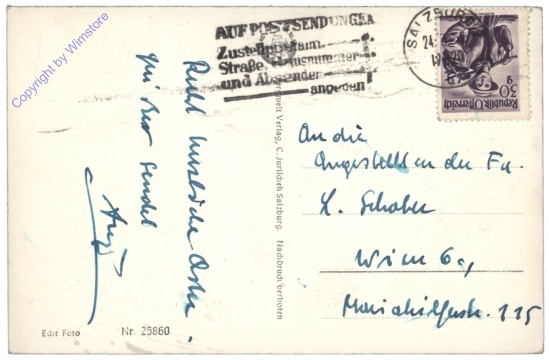 Copyright by Wimstore
AUF POSTSENDUNGEN
Zustellpostamt,
Straße, Hausnummer
und Absender
angeben
SALZBURG
24.
Republik Österreich
30 g
Recht herzliche Oster-
grüße sendet
An die
Angestellten der Fa.
L. Schober
Wien 6c,
Mariahilferstr. 115
Verlag, C. Jurischek Salzburg. Nachdruck verboten
Edit Foto Nr. 25860